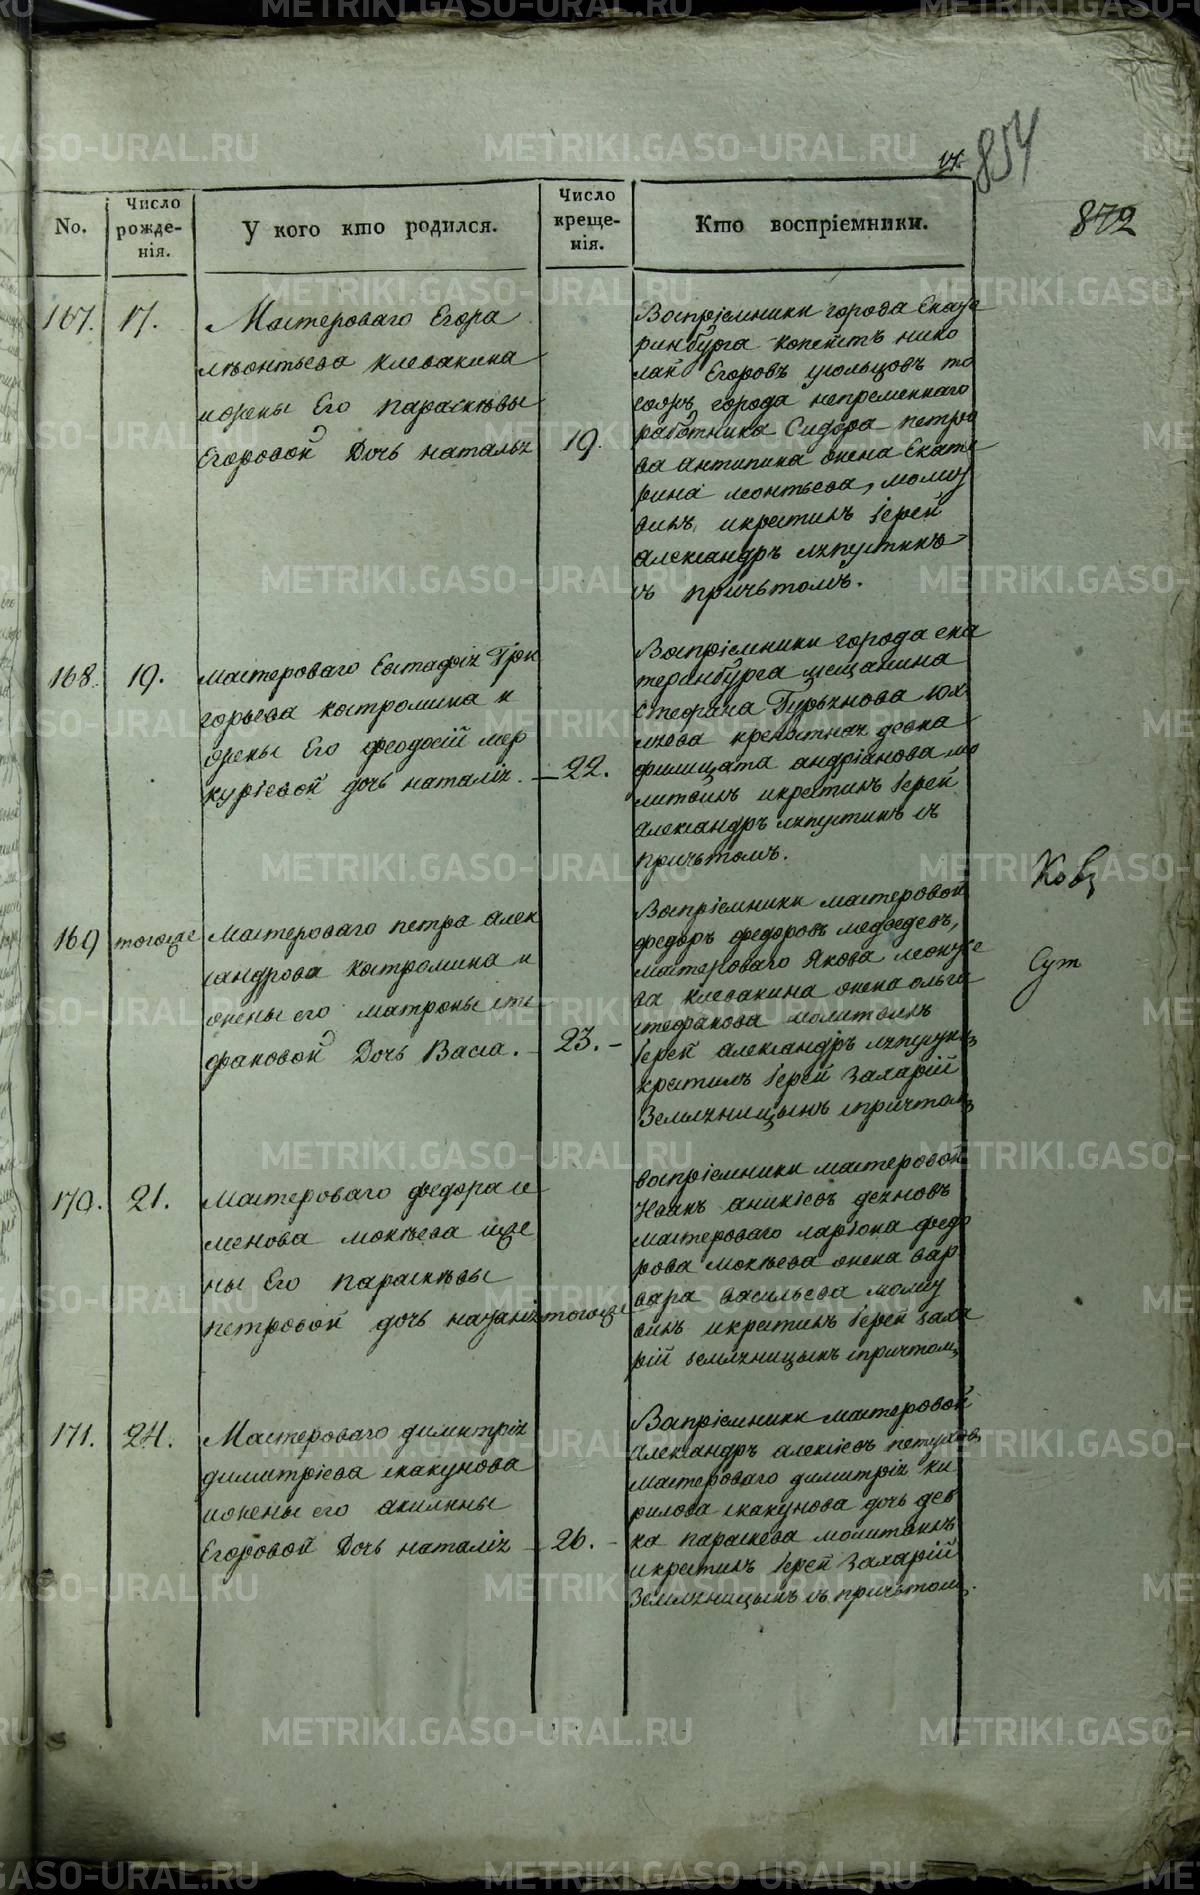 17.
854
872
No.
Число рожде-нія.
У кого кто родился.
Число креще-нія.
Кто воспріемники.
167.
17.
Мастероваго Егора
леонтьева клевакина
ижены Его параскѣвы
Егоровой Дочь наталья
19.
Воспріемники города Екате
ринбурга копеистъ нико
лай Егоровъ угольцовъ то
города непременнаго
работника Сидора петро
ва антипина жена Екате
рина леонтьева, молит
вилъ, икрестилъ Іерей
александръ ляпустинъ
съ причьтомъ.
168.
19.
мастероваго Евстафія Гри
горьева костромина и
жены Его феодосіи мер
куріевой дочь наталія.
22.
Воспріемники города ека
теринбурга мещанина
Стефана
девка
филицата андріанова мо
литвилъ икрестилъ Іерей
александръ ляпустинъ съ
причьтомъ.
169
тогоже
Мастероваго петра алек
сандрова костромина и
жены его матроны сте
фановой Дочь Васса.
23.
Воспріемники мастеровой
федоръ федоровъ медведевъ,
мастероваго Якова леонтье
ва клевакина жена ольга
стефанова молитвилъ
Іерей александръ ляпустинъ
крестилъ Іерей Захарій
Земляницынъ спричтомъ
Ков
Сут
170.
21.
Мастероваго федора се
менова мокѣева иже
ны Его параскѣвы
петровой дочь
тогоже
воспріемники мастеровой
Иванъ аникіевъ
мастероваго ларіона федо
рова мокѣева жена вар
вара васильева молит
вилъ икрестилъ Іерей заха
рій земляницынъ спричтомъ
171.
24.
Мастероваго димитрія
димитріева скакунова
ижены его акилины
Егоровой Дочь наталія
26.
Воспріемники мастеровой
александръ алексіевъ петуховъ
мастероваго димитрія ки
рилова скакунова дочь дев
ка параскева молитвилъ
икрестилъ Іерей Захарій
Земляницынъ съ причьтомъ.
METRIKI.GASO-URAL.RU